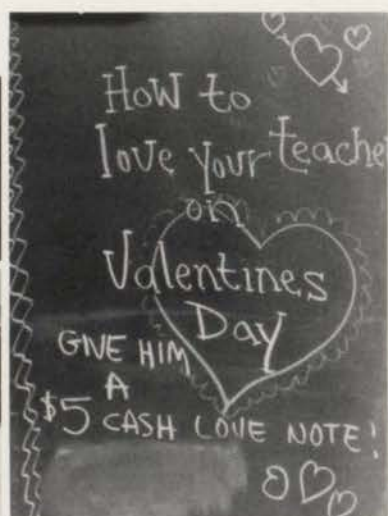 How to
love your teache
on
Valentines
Day
GIVE HIM
A
$5 CASH LOVE NOTE!